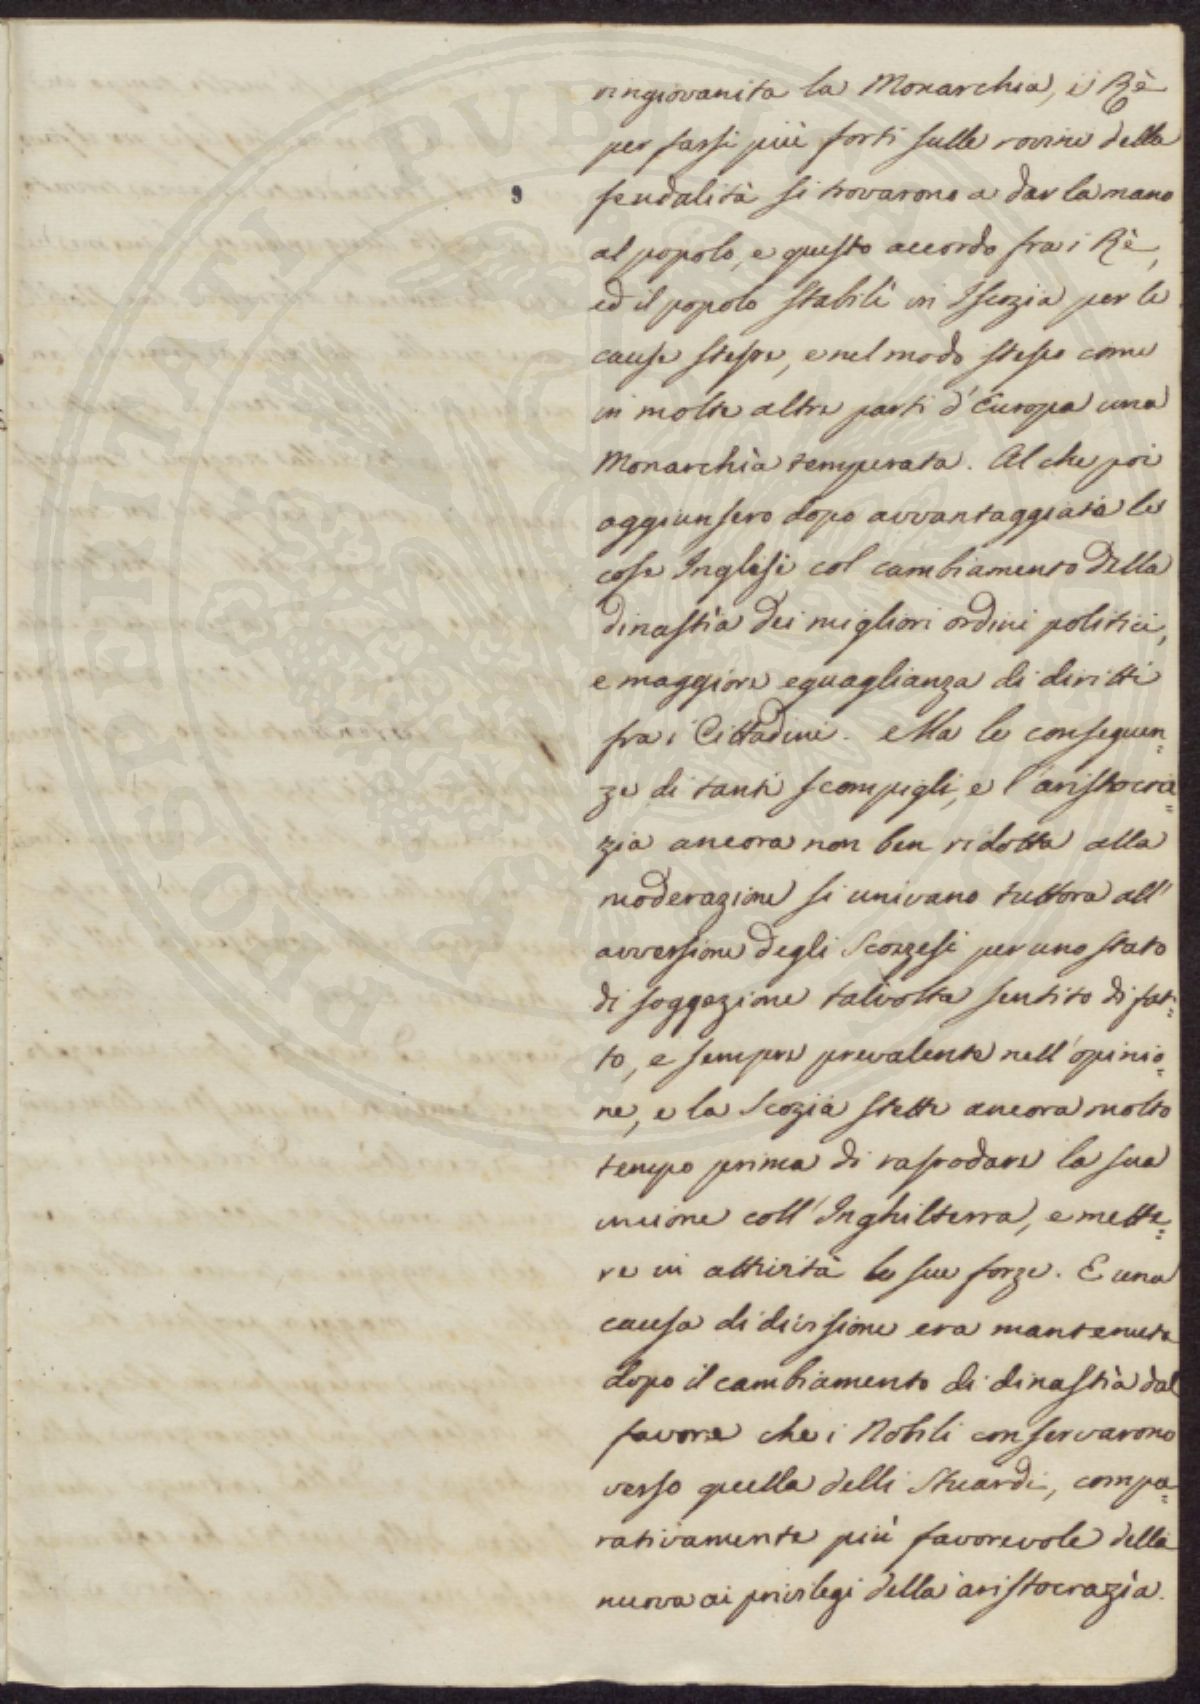 ringiovanita la Monarchia, i Rè
per farsi più forti sulle rovine della
feudalità si trovarono a dar la mano
al popolo, e questo accordo fra i Rè,
ed il popolo stabilì in Iscozia per le
cause stesse, e nel modo stesso come
in molte altre parti d'Europa una
Monarchìa temperata. Al che poi
aggiunsero dopo avvantaggiate le
cose Inglesi col cambiamento della
dinastìa dei migliori ordini politici,
e maggiore eguaglianza di diritti
fra i Cittadini. Ma le conseguen=
ze di tanti scompigli, e l'aristocra=
zia ancora non ben ridotta alla
moderazione si univano tuttora all'
avversione degli Scozzesi per uno stato
di soggezione talvolta sentito di fat=
to, e sempre prevalente nell'opinio=
ne, e la Scozia stette ancora molto
tempo prima di rassodare la sua
unione coll'Inghilterra, e mette=
re in attività le sue forze. E una
causa di divisione era mantenuta
dopo il cambiamento di dinastìa dal
favore che i Nobili conservarono
verso quella delli Stuardi, compa=
rativamente più favorevole della
nuova ai privilegi della aristocrazìa.
9
POSTERITATI PUBLICAE